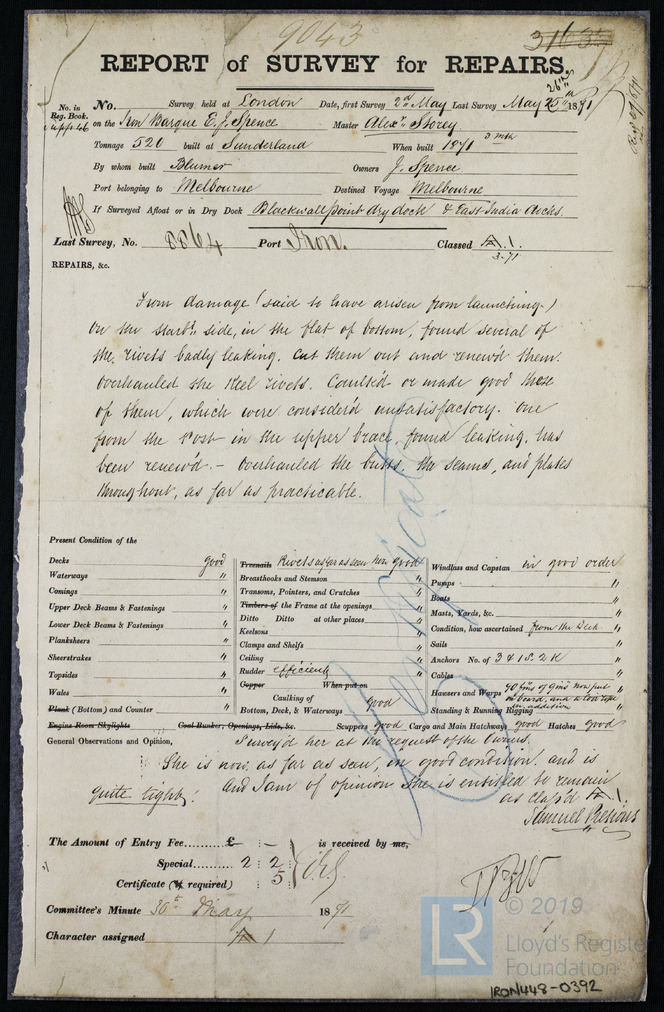 9043
REPORT of SURVEY for REPAIRS.
No. in Reg. Book.
No. Survey held at London Date, first Survey 2nd May Last Survey May 26th 1871
on the Iron Barque E. J. Spence Master Alexr. Storey
Tonnage 520 built at Sunderland When built 1871 3 mth
By whom built Blumer Owners J. Spence
Port belonging to Melbourne Destined Voyage Melbourne
If Surveyed Afloat or in Dry Dock Blackwall Point dry dock & East India docks.
Last Survey, No. 8864 Port Iron. Classed A. 1.
3-71
REPAIRS, &c.
From damage (said to have arisen from launching-)
On the starbd. side, in the flat of bottom, found several of
the rivets badly leaking. Cut them out and renew'd them.
Overhauled the Keel rivets. Caulk'd or made good those
of them, which were consider'd unsatisfactory. One
from the Post in the upper brace found leaking, has
been renew'd. - Overhauled the butts, the seams, and plates
throughout, as far as practicable.
Present Condition of the
Decks good
Waterways "
Comings "
Upper Deck Beams & Fastenings "
Lower Deck Beams & Fastenings "
Planksheers "
Sheerstrakes "
Topsides "
Wales "
Plank (Bottom) and Counter "
Engine Room Skylights Coal Bunker, Openings, Lids, &c.
Treenails Rivets as far as seen now good
Breasthooks and Stemson "
Transoms, Pointers, and Crutches "
Timbers of the Frame at the openings "
Ditto Ditto at other places "
Keelsons "
Clamps and Shelfs "
Ceiling "
Rudder efficient
Copper When put on
Caulking of Bottom, Deck, & Waterways good
Scuppers good Cargo and Main Hatchways good Hatches good
Windlass and Capstan in good order
Pumps "
Boats "
Masts, Yards, &c. "
Condition, how ascertained from the Deck "
Sails "
Anchors No. of 3 & 1 S. 2 K "
Cables "
Hawsers and Warps 90 fms of 9ins now put on board, and a tow rope
Standing & Running Rigging in addition "
General Observations and Opinion, Survey'd her at the request of the Owners.
She is now, as far as seen, in good condition. and is
quite tight. And I am of opinion she is entitled to remain
as class'd A. 1.
The Amount of Entry Fee £ - is received by me,
Special 2 : 2
Certificate (if required) : 5
Committee's Minute 30th May 1871
Character assigned A 1
© 2019
LR
Lloyd's Register
Foundation
IRON448-0392